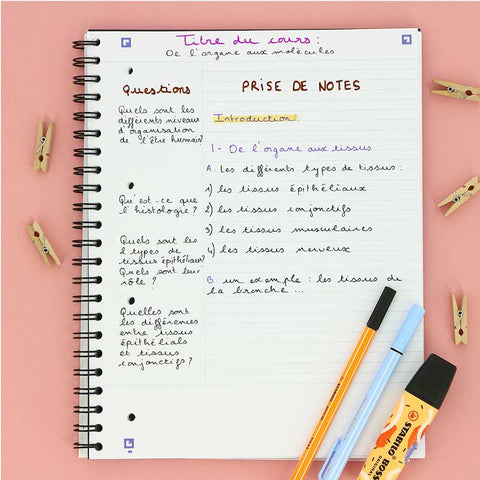 Titre du cours :
De l'organe aux molécules
Questions
Quels sont les
différents niveaux
d'organisation
de l'être humain?
Qu'est-ce que
l'histologie?
Quels sont les
2 types de
tissus épithéliaux?
Quels sont leur
rôle ?
Quelles sont
les différences
entre tissus
épithélials
et tissus
conjonctifs?
PRISE DE NOTES
Introduction:
1- De l'organe aux tissus
A. Les différents types de tissus :
1) les tissus épithéliaux
2) les tissus conjonctifs
3) les tissus musculaires
4) les tissus nerveux
B. un exemple : les tissus de
la branche ...
STABILO
BOSS
ORIGINAL